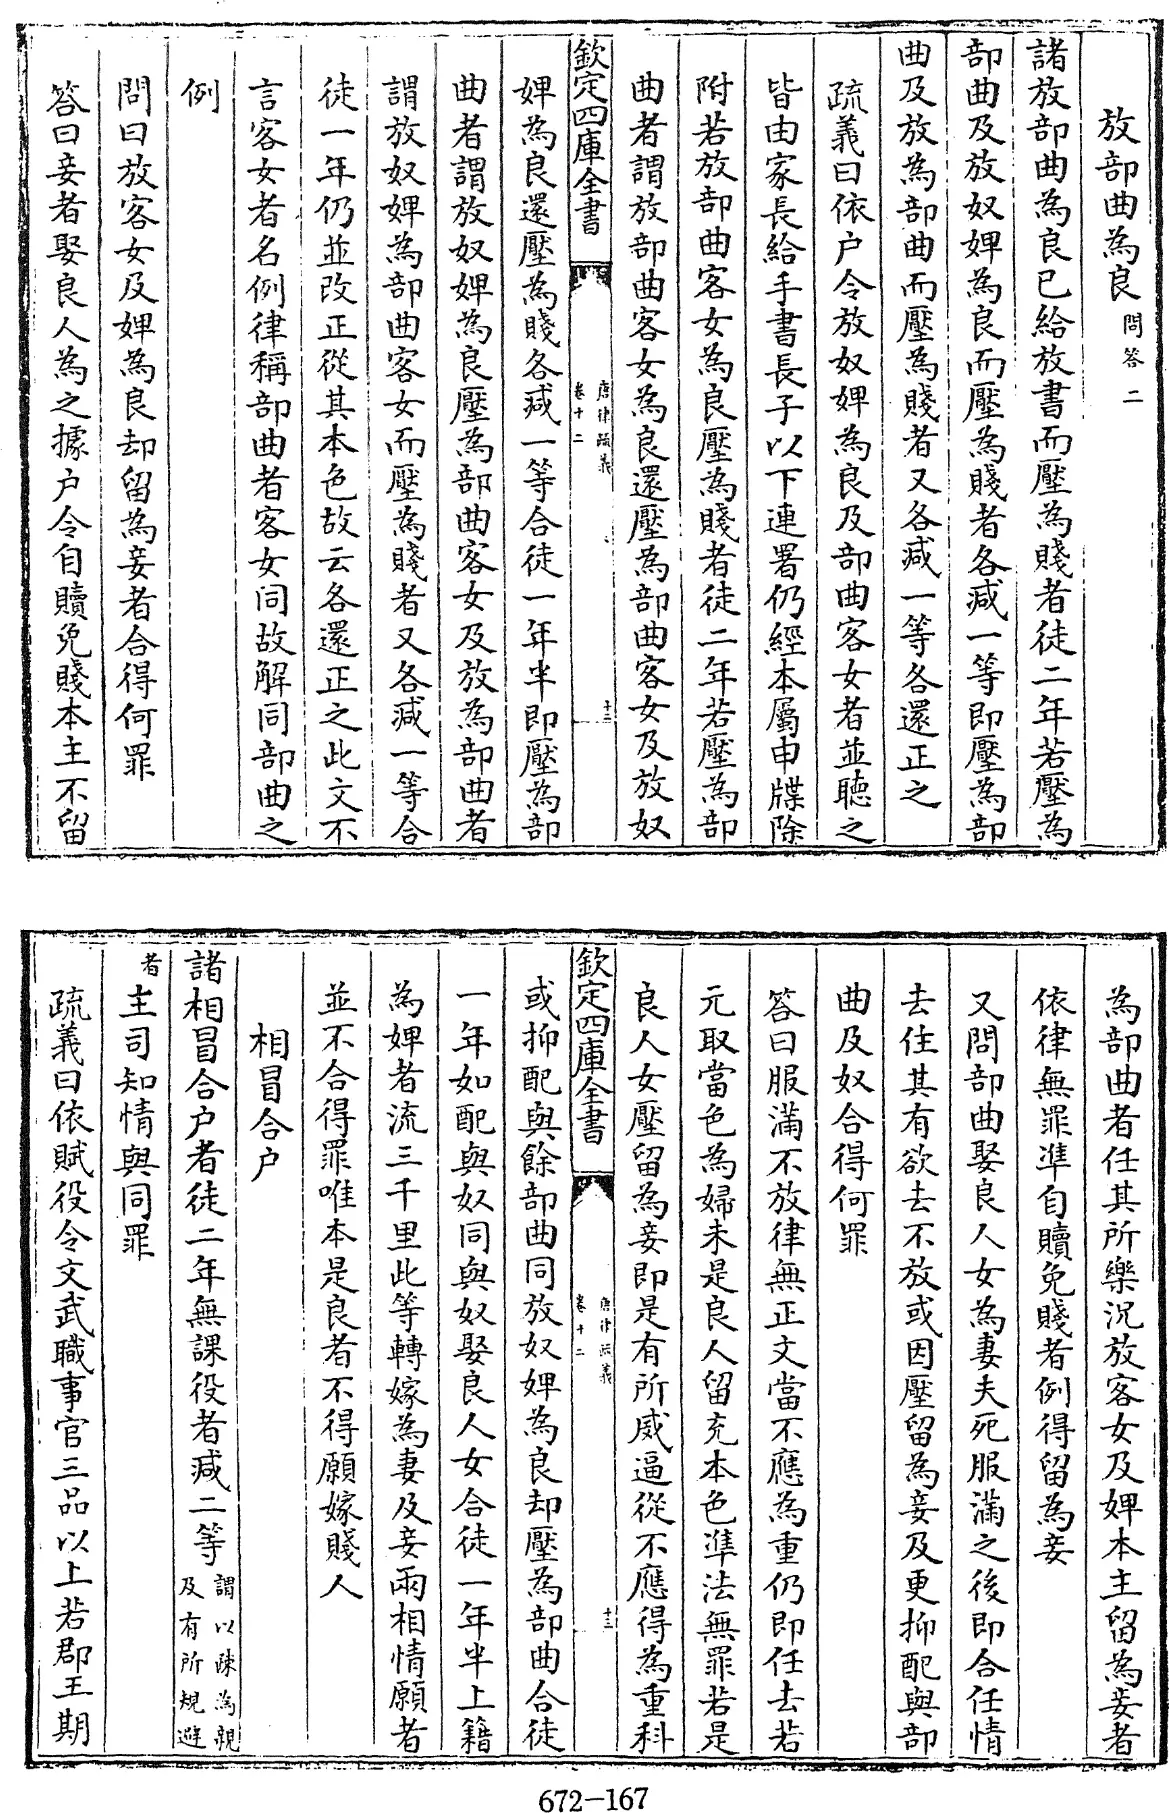 放部曲為良問答二
諸放部曲為良已給放書而壓為賤者徒二年若壓為
部曲及放奴婢為良而壓為賤者各減一等即壓為部
曲及放為部曲而壓為賤者又各減一等各還正之
疏義曰依户令放奴婢為良及部曲客女者並聽之
皆由家長給手書長子以下連署仍經本屬申牒除
附若放部曲客女為良壓為賤者徒二年若壓為部
曲者謂放部曲客女為良還壓為部曲客女及放奴
欽定四庫全書
唐律疏義
卷十二
十二
婢為良還壓為賤各減一等合徒一年半即壓為部
曲者謂放奴婢為良壓為部曲客女及放為部曲者
謂放奴婢為部曲客女而壓為賤者又各減一等合
徒一年仍並改正從其本色故云各還正之此文不
言客女者名例律稱部曲者客女同故解同部曲之
例
問曰放客女及婢為良却留為妾者合得何罪
答曰妾者娶良人為之據户令自贖免賤本主不留
為部曲者任其所樂況放客女及婢本主留為妾者
依律無罪凖自贖免賤者例得留為妾
又問部曲娶良人女為妻夫死服滿之後即合任情
去住其有欲去不放或因壓留為妾及更抑配與部
曲及奴合得何罪
答曰服滿不放律無正文當不應為重仍即任去若
元取當色為婦未是良人留充本色凖法無罪若是
良人女壓留為妾即是有所威逼從不應得為重科
欽定四庫全書
唐律疏義
卷十二
十三
或抑配與餘部曲同放奴婢為良却壓為部曲合徒
一年如配與奴同與奴娶良人女合徒一年半上籍
為婢者流三千里此等轉嫁為妻及妾兩相情願者
並不合得罪唯本是良者不得願嫁賤人
相冒合户
諸相冒合户者徒二年無課役者減二等謂以疎為親及有所規避
者主司知情與同罪
疏義曰依賦役令文武職事官三品以上若郡王期
672-167